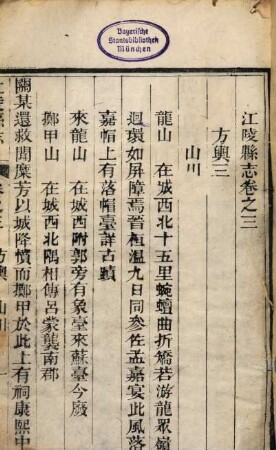 Bayerische
Staatsbibliothek
München
江陵縣志卷之三
方輿三
山川
龍山 在城西北十五里蜿蟺曲折矯若游龍眾嶺
迴環如屏障焉晉桓溫九日同參佐孟嘉宴此風落
嘉帽上有落帽臺詳古蹟
來龍山 在城西附郭旁有象臺來蘇臺今廢
擲甲山 在城西北隅相傳呂蒙襲南郡
關某還救聞糜芳以城降憤而擲甲於此上有祠康熙中
方輿 山川 一